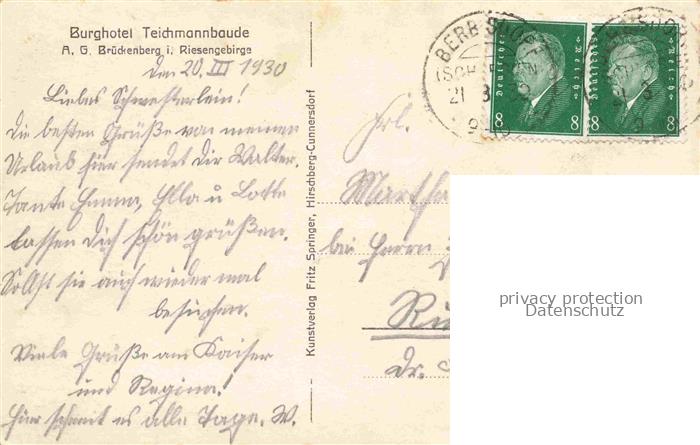 Burghotel Teichmannbaude
A. G. Brückenberg i. Riesengebirge
Den 20. III 1930
Liebes Schwesterlein!
Die besten Grüße von meinem
Urlaub hier sendet dir Walter.
Tante Emma, Ella u Lotte
lassen Dich schön grüßen.
Sollst sie auch wieder mal
besuchen.
Viele Grüße an Kaiser
und Regina!
Hier schneit es alle Tage. W.
Kunstverlag Fritz Springer, Hirschberg-Cunnersdorf
Deutsches Reich
8 8
Deutsches Reich
8 8
21
Frl.
Martha
bei Herrn
Dr.
privacy protection
Datenschutz